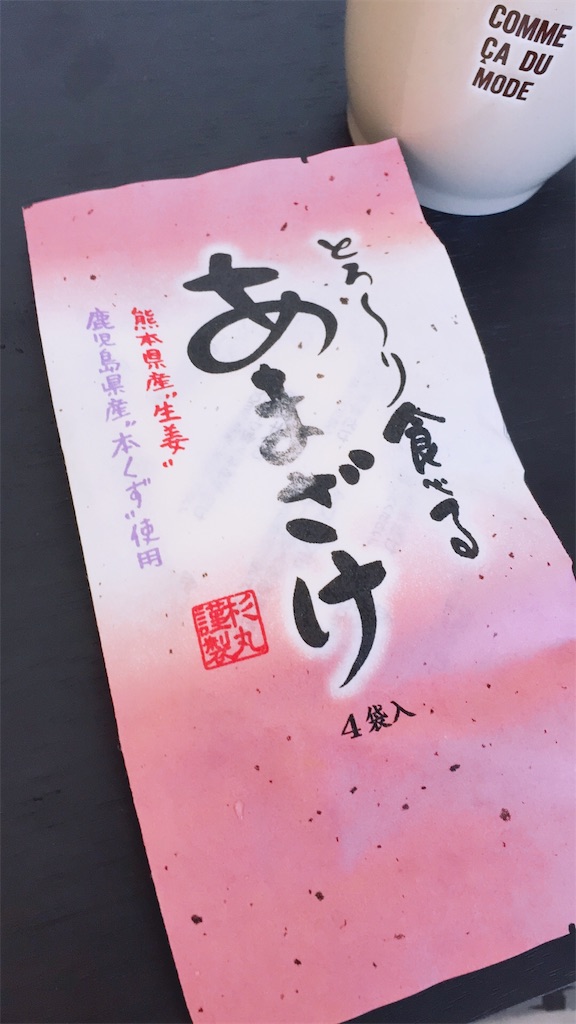 COMME
ÇA DU
MODE
とろ〜り食べる
あまざけ
熊本県産"生姜"
鹿児島県産"本くず"使用
杉丸
謹製
4袋入